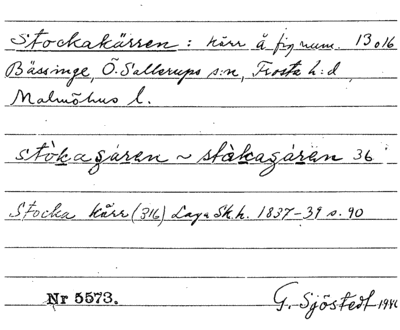 Stockakärren : kärr å fig num. 13 o 16
Bässinge, Ö. Sallerups s:n, Frosta h:d,
Malmöhus l.
stòkagáren ~ stàkagáren 36
Stocka Kärr (316) Laga Sk.h. 1837-39 s. 90
Nr 5573.
G. Sjöstedt